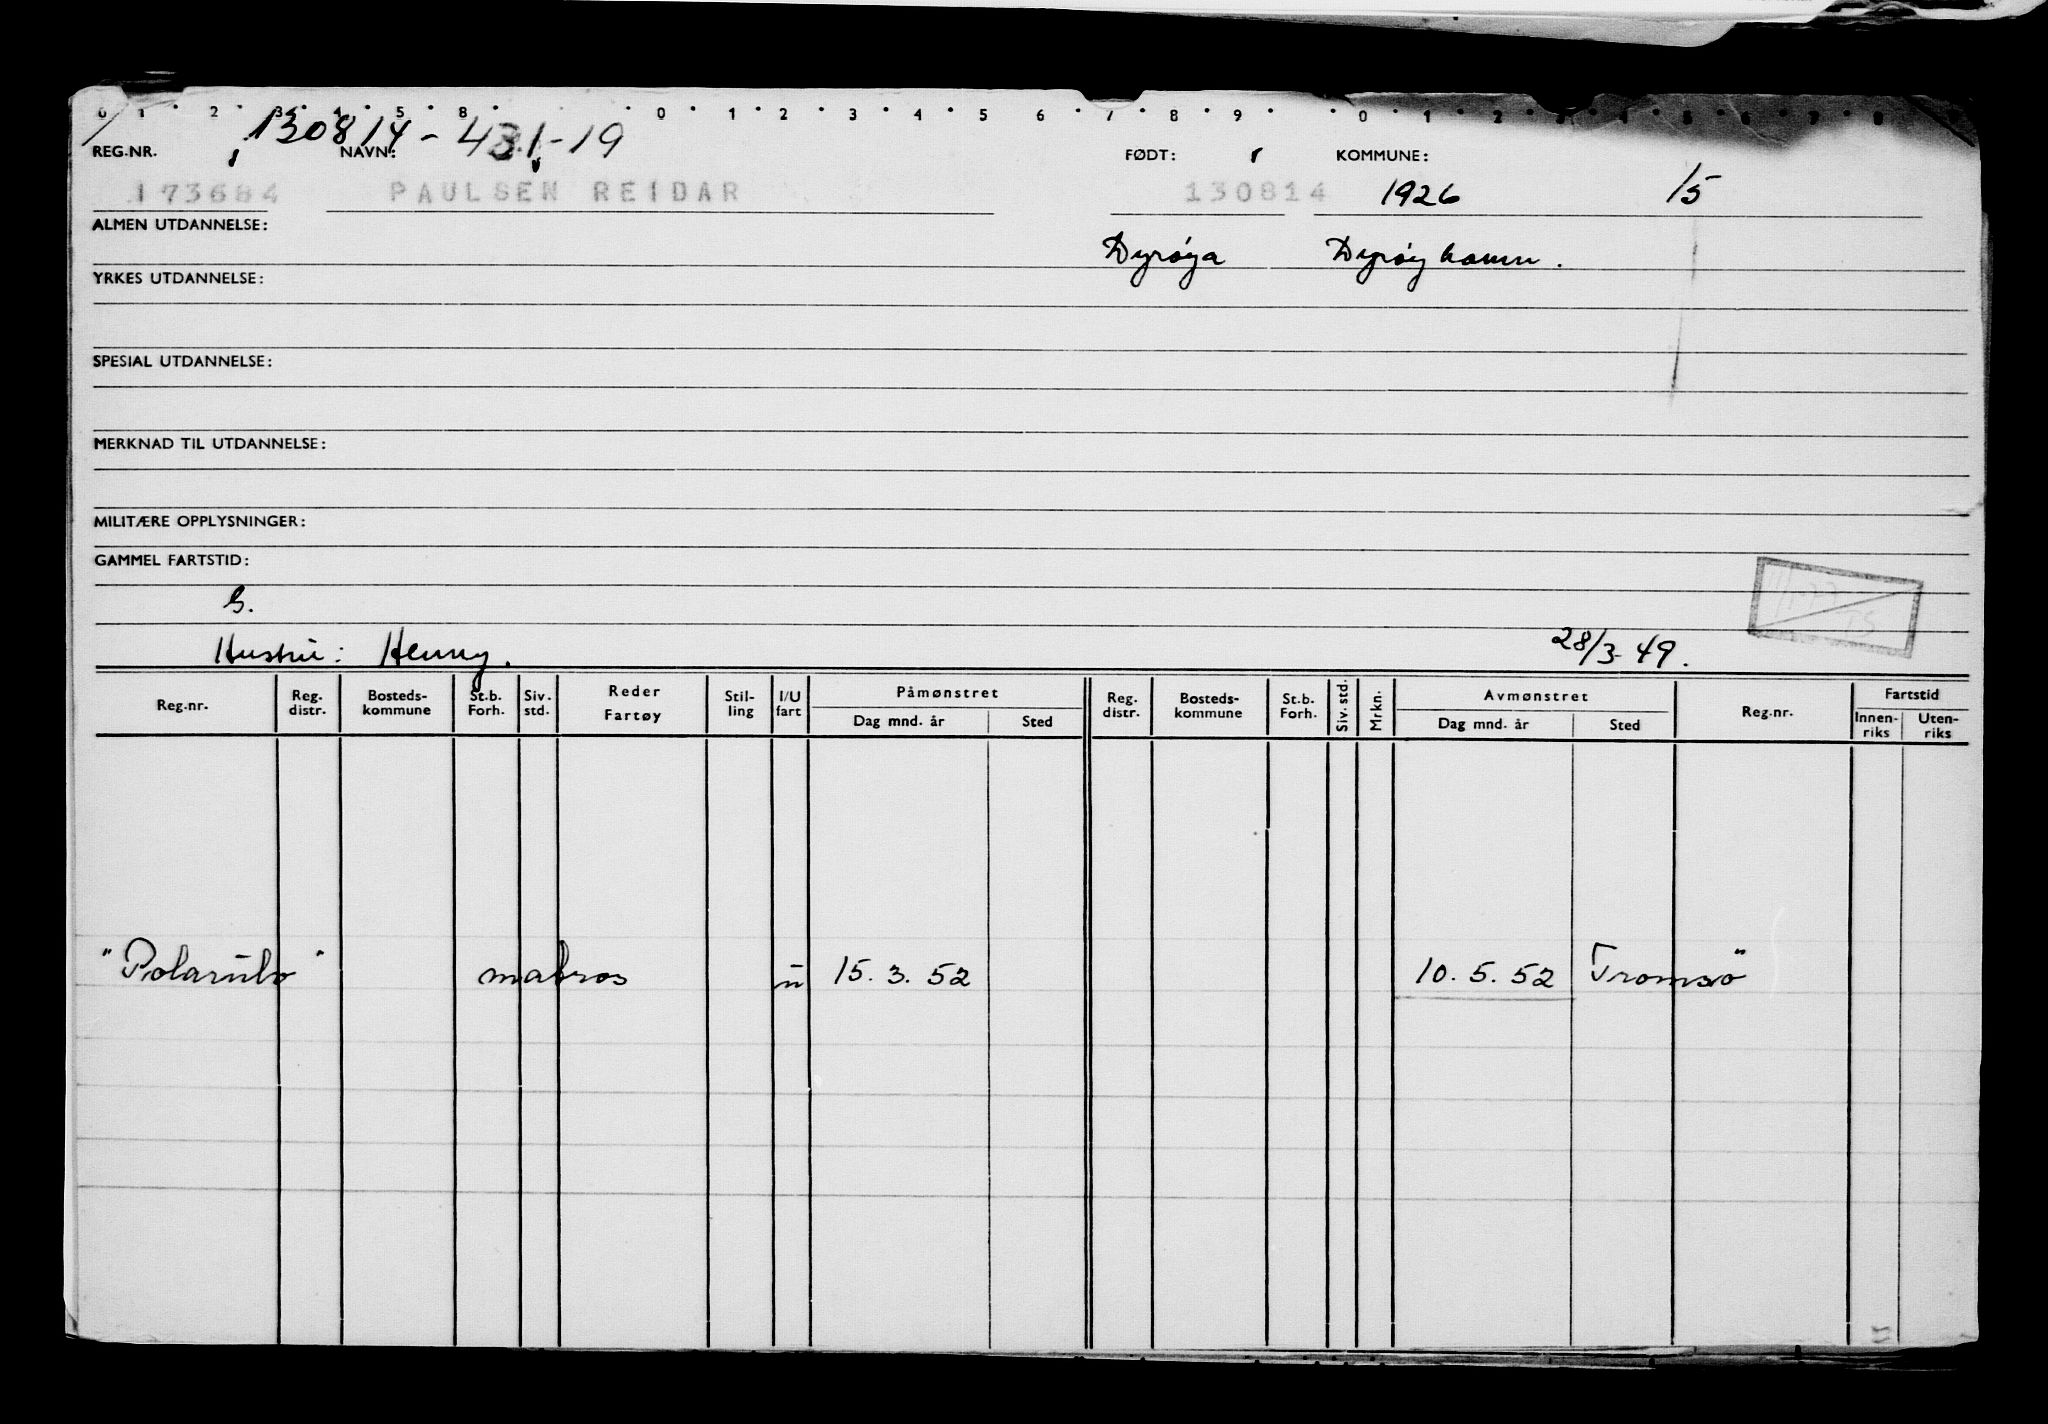 0 1 2 3 4 5 8 0 1 2 3 4 5 6 7 8 9 0 1 2 3 4 5 6 7 8
130814-431-19
REG.NR. NAVN: FØDT: KOMMUNE:
173684 PAULSEN REIDAR 130814 1926 15
ALMEN UTDANNELSE:
Dyrøya Dyrøyhamn.
YRKES UTDANNELSE:
SPESIAL UTDANNELSE:
MERKNAD TIL UTDANNELSE:
MILITÆRE OPPLYSNINGER:
GAMMEL FARTSTID:
G.
Hustru: Henny. 28/3-49.
Reg.nr. Reg. distr. Bosteds-kommune St.b. Forh. Siv. std. Reder Fartøy Stil-ling I/U fart Påmønstret Dag mnd. år Sted Reg. distr. Bosteds-kommune St.b. Forh. Siv. std. Mrkn. Avmønstret Dag mnd. år Sted Reg.nr. Fartstid Innen-riks Uten-riks
"Polarulv" matros u 15.3.52 10.5.52 Tromsø